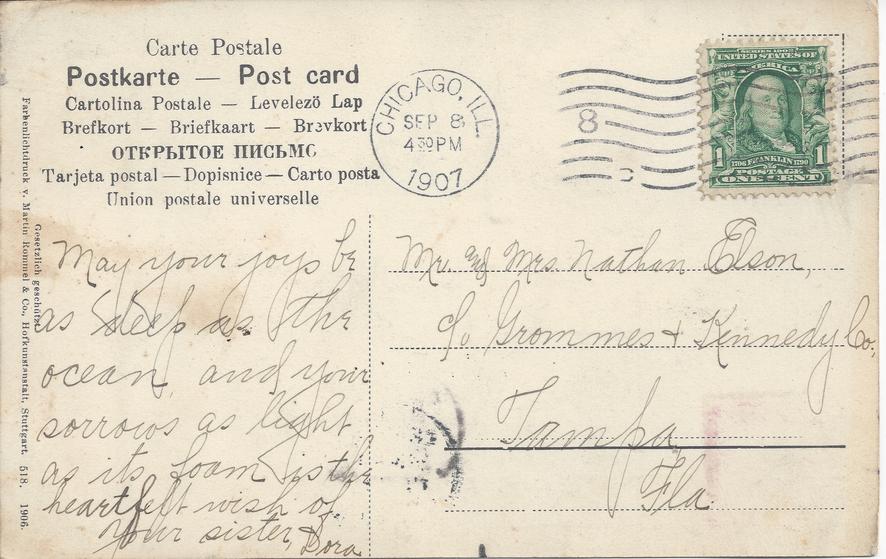 Carte Postale
Postkarte — Post card
Cartolina Postale — Levelezö Lap
Brefkort — Briefkaart — Brevkort
ОТКРЫТОЕ ПИСЬМО
Tarjeta postal — Dopisnice — Carto posta
Union postale universelle
CHICAGO, ILL.
SEP 8
4 30 PM
1907
8
SERIES 1902
UNITED STATES OF
AMERICA
1 1
1706 FRANKLIN 1790
POSTAGE
ONE CENT
Farbenlichtdruck v. Martin Rommel & Co., Hofkunstanstalt, Stuttgart. 518. 1906.
Gesetzlich geschützt.
May your joys be
as deep as the
ocean, and your
sorrows as light
as its foam is the
heartfelt wish of
Your sister, Dora
Mr. and Mrs Nathan Elson,
c/o Grommes & Kennedy Co.,
Tampa,
Fla.